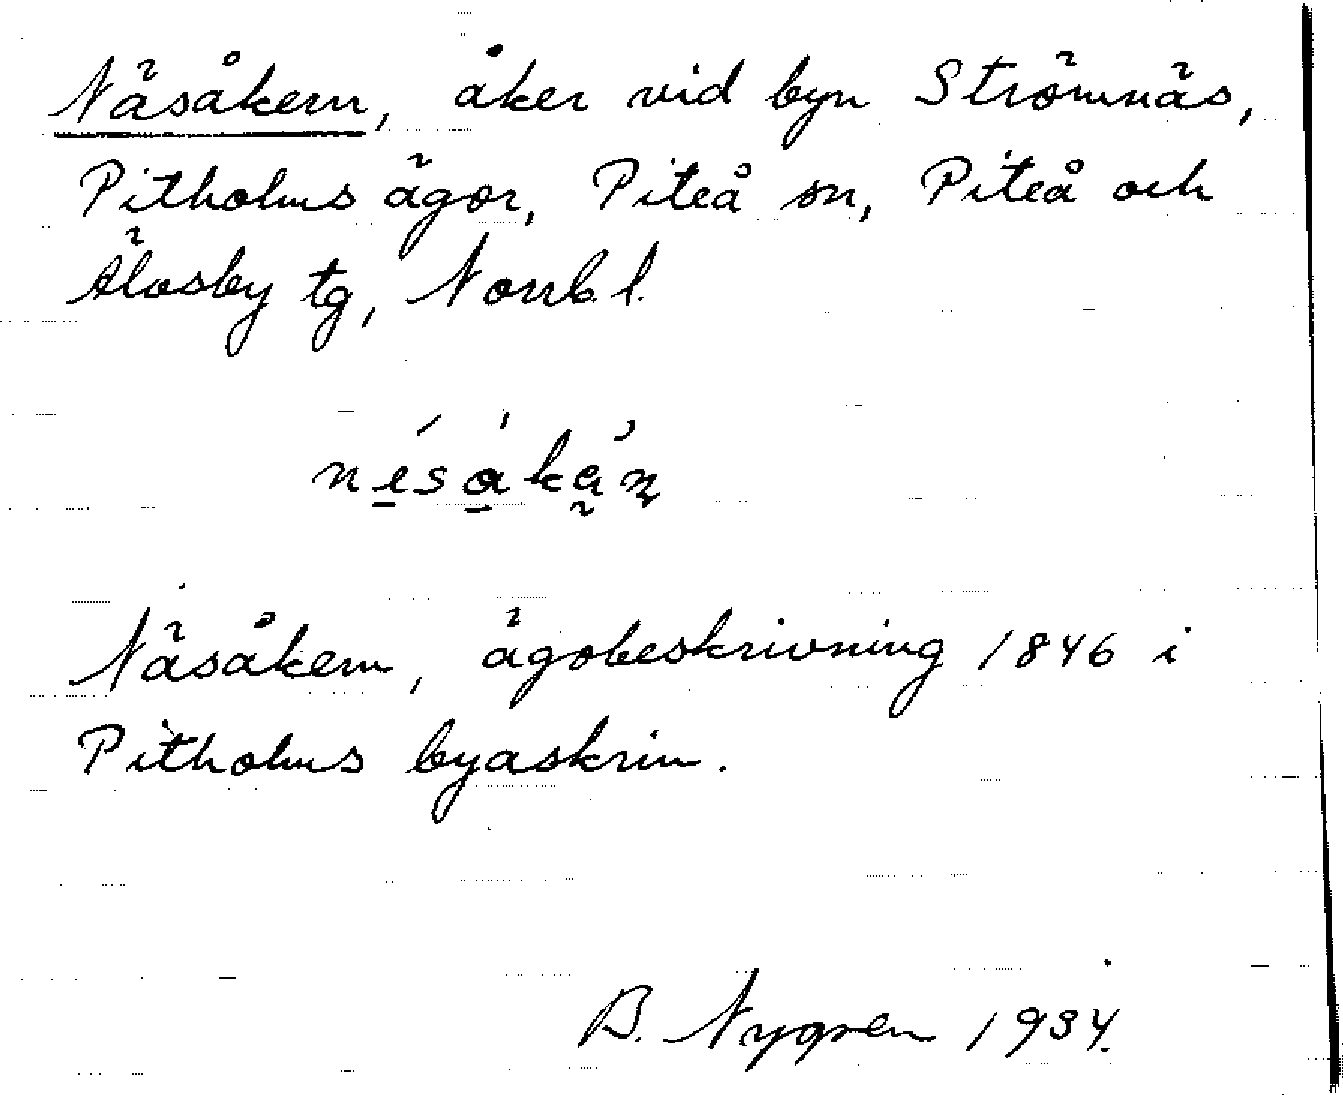 Näsåkern, åker vid byn Strömnäs,
Pitholms ägor, Piteå sn, Piteå och
Älvsby tg, Norrb. l.
Näsåkern, ägobeskrivning 1846 i
Pitholms byaskrin.
B. Nygren 1934.